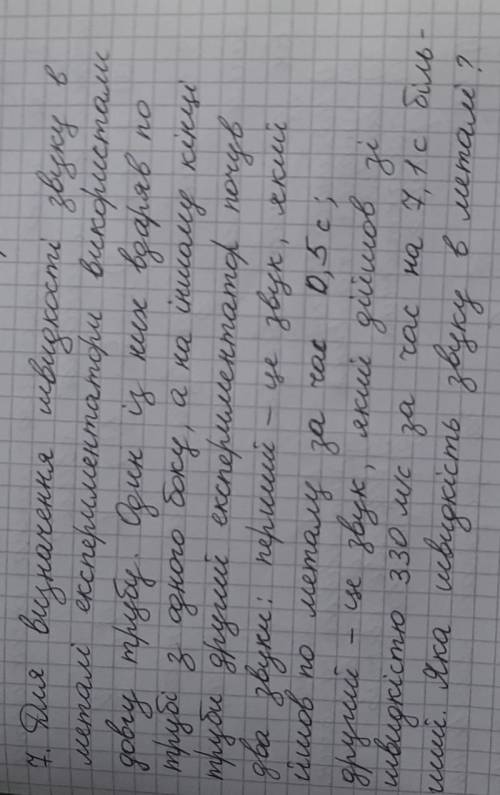 7. Для визначення швидкості звуку в
металі експериментатори використали
довгу трубу. Один із них вдаряв по
трубі з одного боку, а на іншому кінці
труби другий експериментатор почув
два звуки: перший – це звук, який
йшов по металу за час 0,5 с;
другий – це звук, який дійшов зі
швидкістю 330 м/с за час на 7,1 с біль-
ший. Яка швидкість звуку в металі?